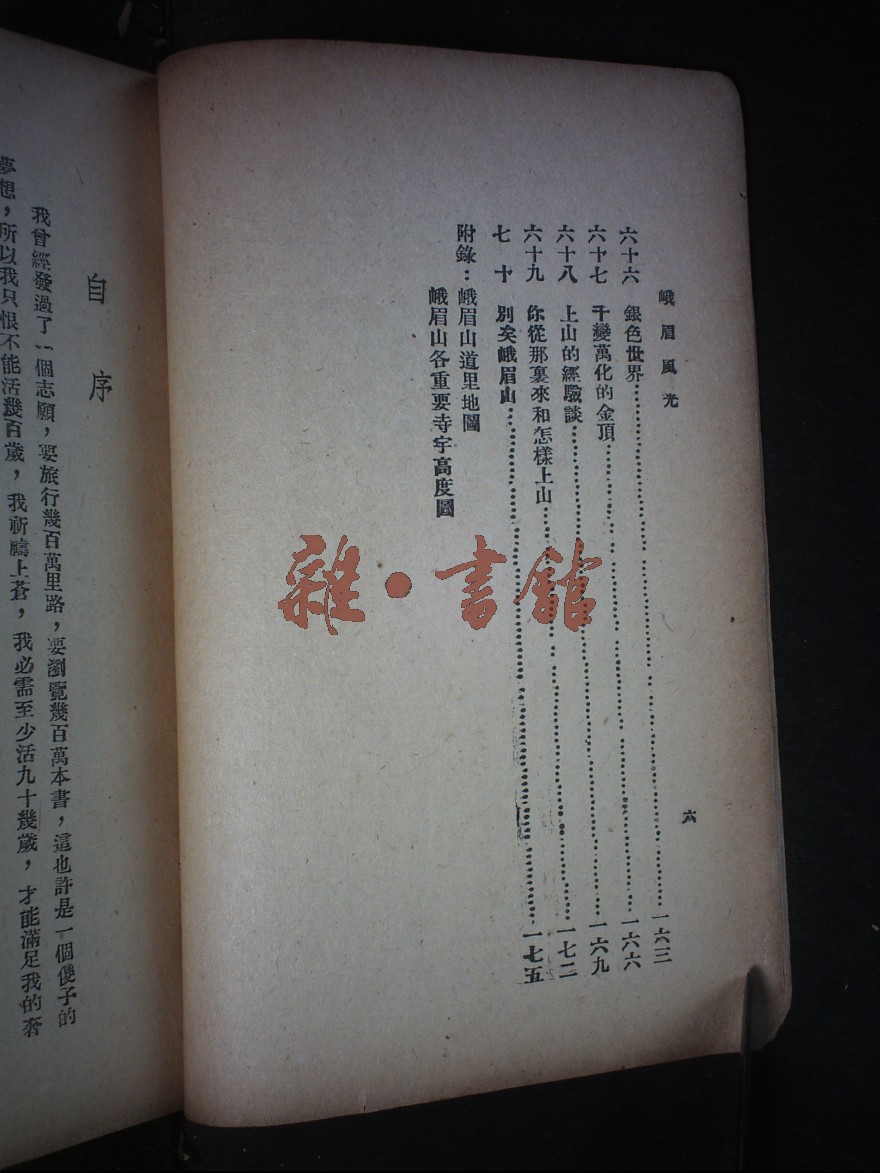 峨眉風光
六
六十六 銀色世界……一六三
六十七 千變萬化的金頂……一六六
六十八 上山的經驗談……一六九
六十九 你從那裏來和怎樣上山……一七二
七十 別矣峨眉山……一七五
附錄：峨眉山道里地圖
峨眉山各重要寺宇高度圖
雜·書館
自序
我曾經發過了一個志願，要旅行幾百萬里路，要瀏覽幾百萬本書，這也許是一個傻子的
夢想，所以我只恨不能活幾百歲，我祈禱上蒼，我必需至少活九十幾歲，才能滿足我的奢